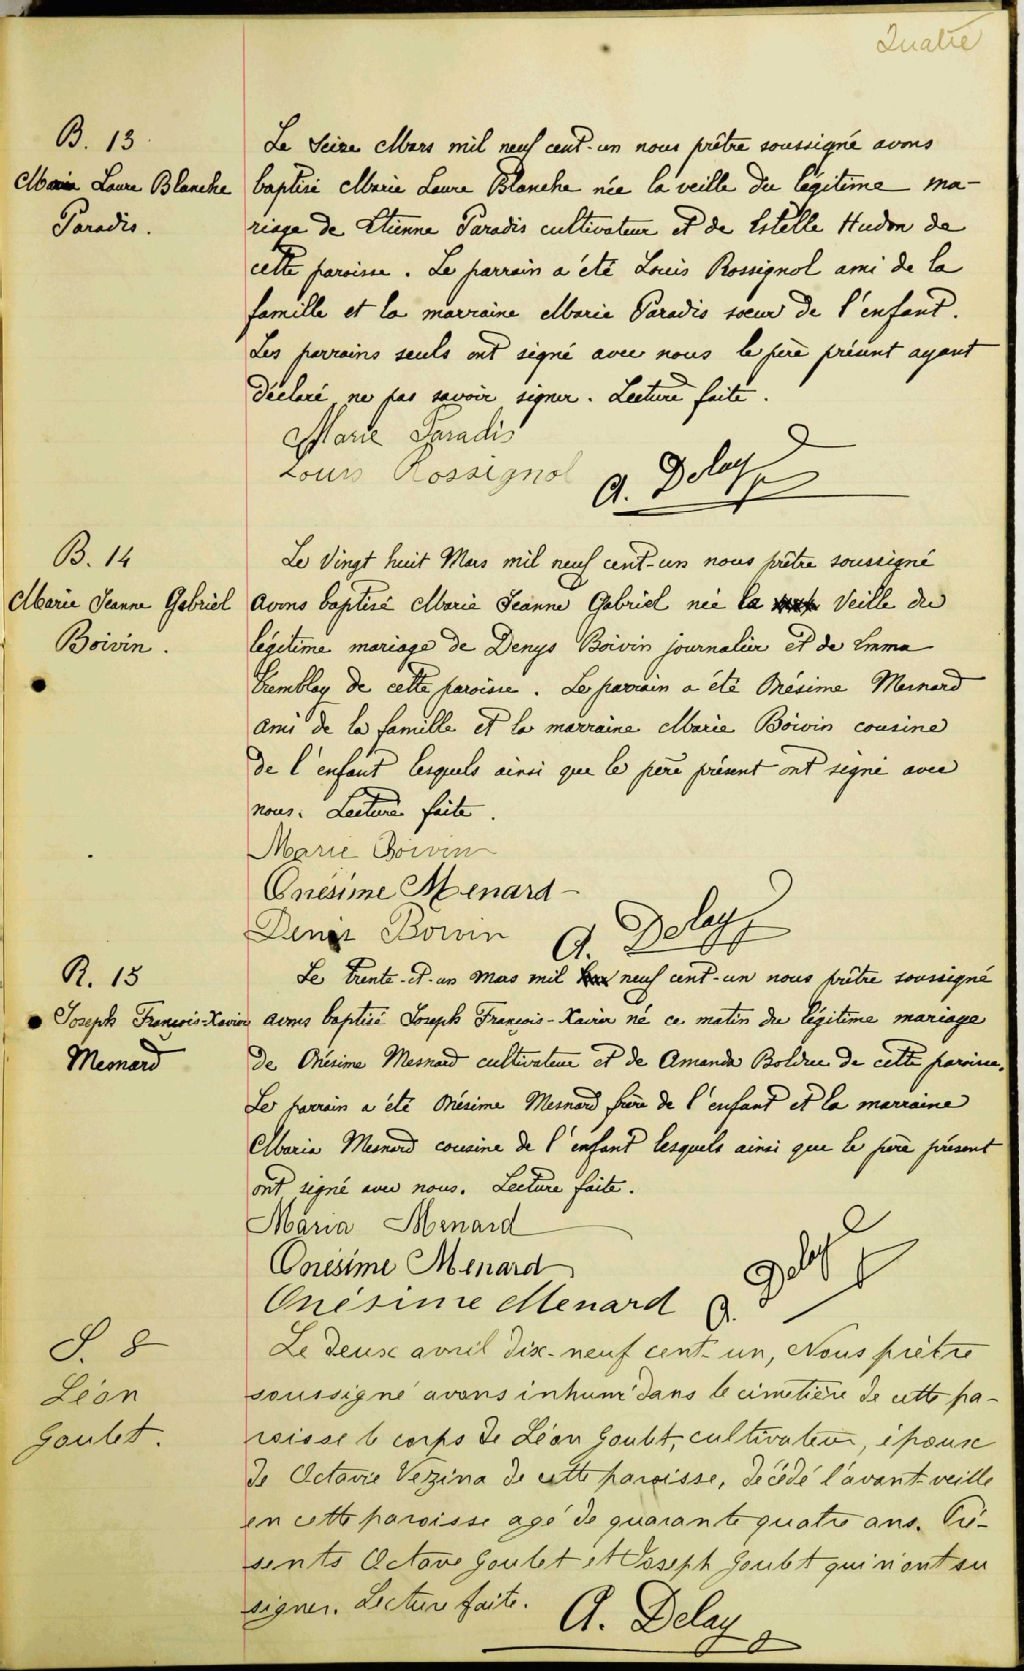 Quatre
B. 13
Marie Laure Blanche
Paradis.
Le seize Mars mil neuf cent-un nous prêtre soussigné avons
baptisé Marie Laure Blanche née la veille du légitime ma-
riage de Etienne Paradis cultivateur et de Estelle Hudon de
cette paroisse. Le parrain a été Louis Rossignol ami de la
famille et la marraine Marie Paradis soeur de l'enfant.
Les parrains seuls ont signé avec nous le père présent ayant
déclaré ne pas savoir signer. Lecture faite.
Marie Paradis
Louis Rossignol
A. Delay
B. 14
Marie Jeanne Gabriel
Boivin.
Le Vingt huit Mars mil neuf cent-un nous prêtre soussigné
avons baptisé Marie Jeanne Gabriel née la Veille du
légitime mariage de Denys Boivin journalier et de Emma
Tremblay de cette paroisse. Le parrain a été Onésime Mesnard
ami de la famille et la marraine Marie Boivin cousine
de l'enfant lesquels ainsi que le père présent ont signé avec
nous. Lecture faite.
Marie Boivin
Onésime Menard
Denis Boivin
A. Delay
R. 15
Joseph François-Xavier
Mesnard
Le trente-et-un Mars mil neuf cent-un nous prêtre soussigné
avons baptisé Joseph François-Xavier né ce matin du légitime mariage
de Onésime Mesnard cultivateur et de Amanda Bolduc de cette paroisse.
Le parrain a été Onésime Mesnard frère de l'enfant et la marraine
Maria Mesnard cousine de l'enfant lesquels ainsi que le père présent
ont signé avec nous. Lecture faite.
Maria Menard
Onésime Menard
Onésime Menard
A. Delay
S. 8
Léon
Goulet.
Le deux avril dix-neuf cent-un, Nous prêtre
soussigné avons inhumé dans le cimetière de cette pa-
roisse le corps de Léon Goulet, cultivateur, époux
de Octavie Vézina de cette paroisse, décédé l'avant-veille
en cette paroisse agé de quarante quatre ans. Pré-
sents Octave Goulet et Joseph Goulet qui n'ont su
signer. Lecture faite.
A. Delay